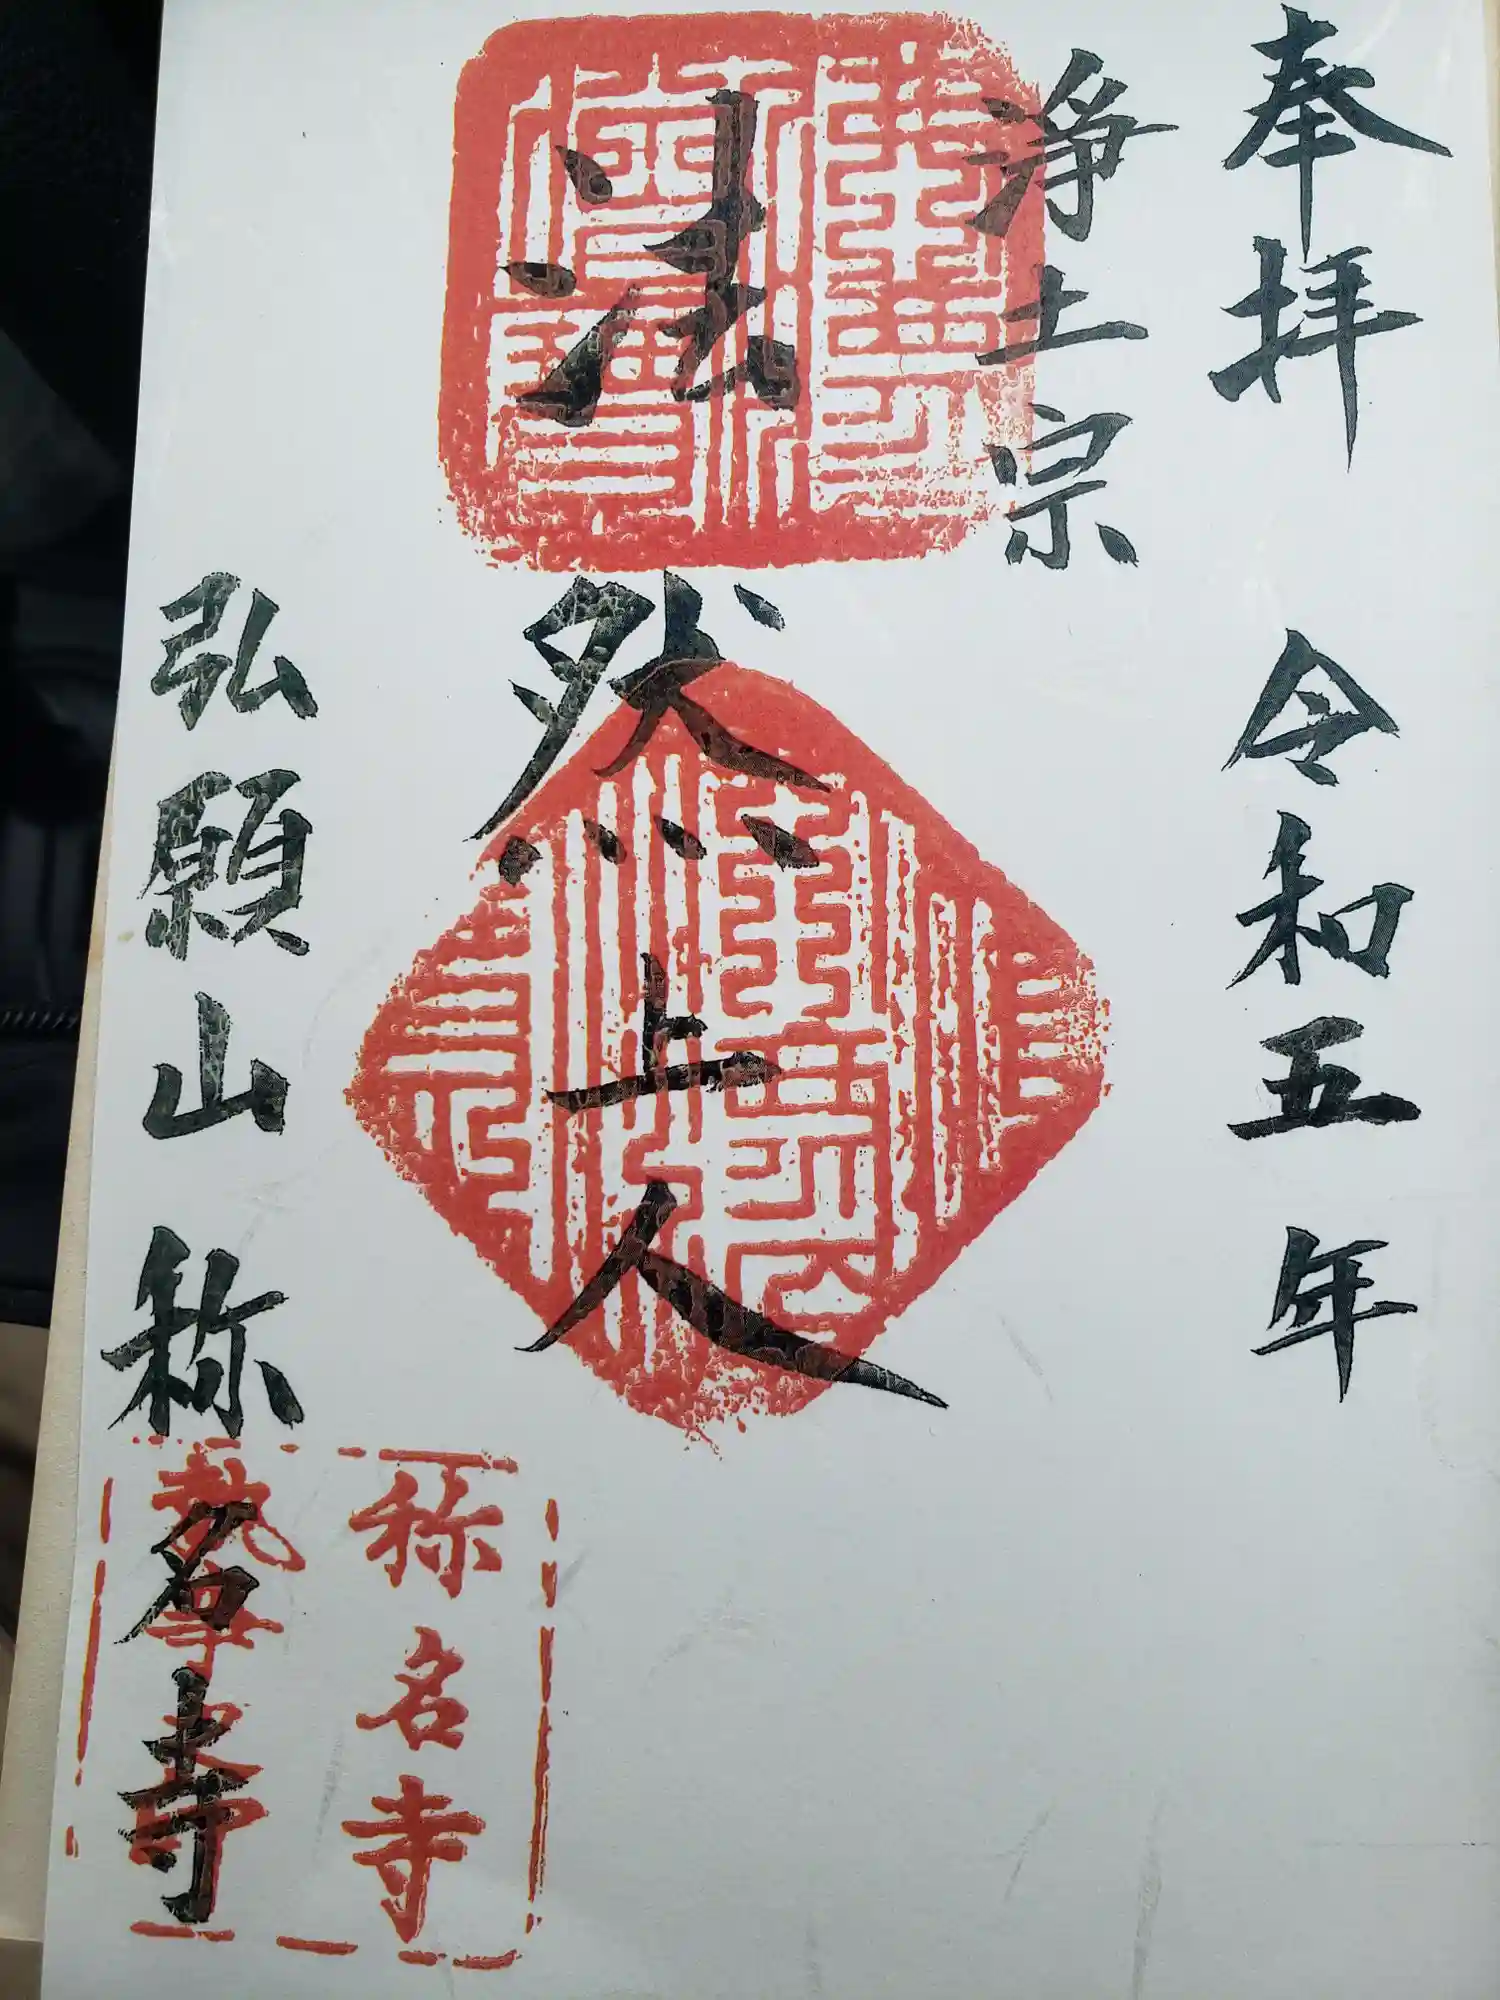 奉拝 令和五年
浄土宗
法然上人
弘願山 称名寺
称名寺
執事之印